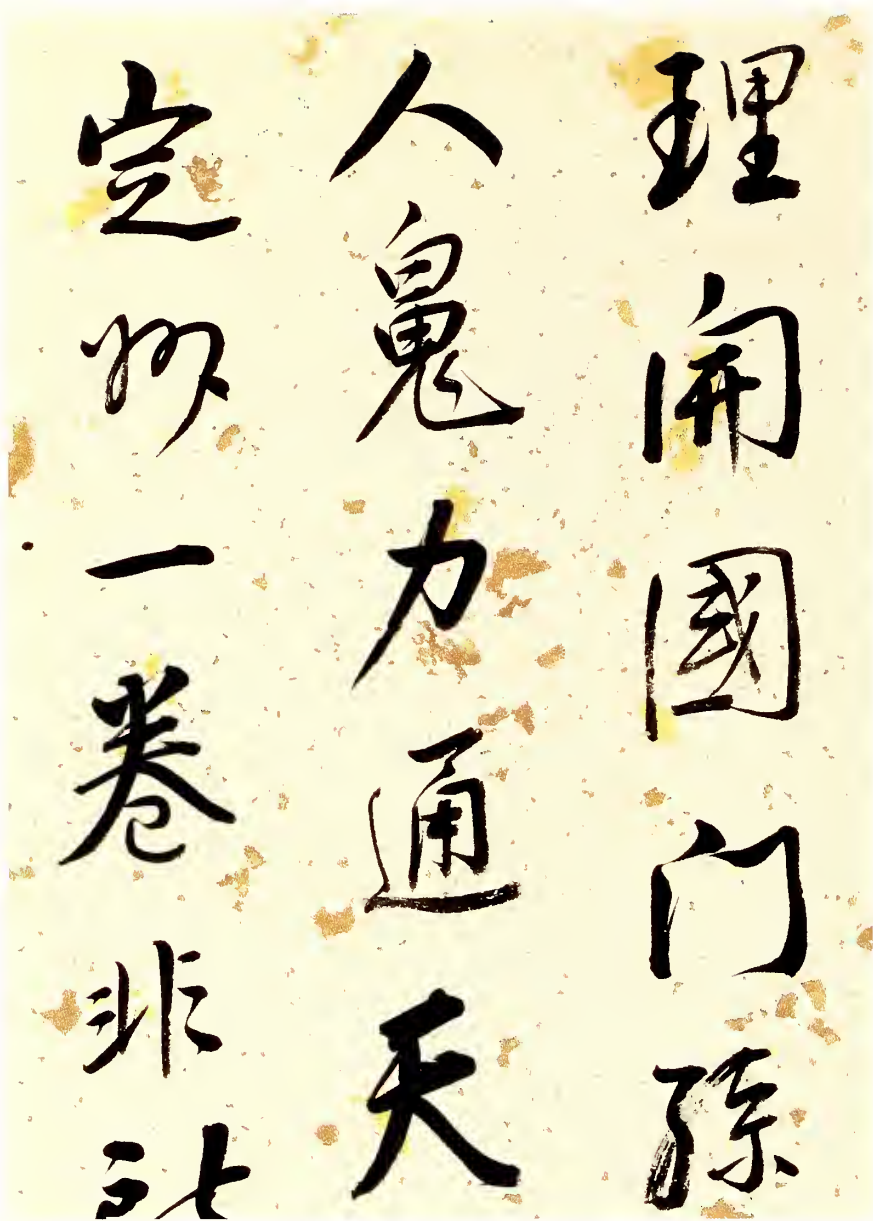 理開國門孫
人力通天
定州一卷非